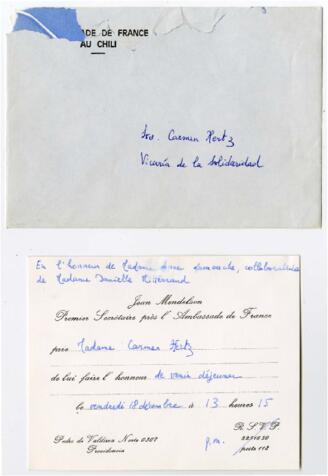 ADE DE FRANCE
AU CHILI
Sra. Carmen Hertz
Vicaría de la Solidaridad
En l'honneur de Madame Lamouche, collaboratrice
de Madame Danielle Mitterrand
Jean Mendelson
Premier Secrétaire près l'Ambassade de France
prie Madame Carmen Hertz
de lui faire l'honneur de venir déjeuner
le vendredi 18 décembre à 13 heures 15
R. S. V. P.
Pedro de Valdivia Norte 0307
Providencia
p.m.